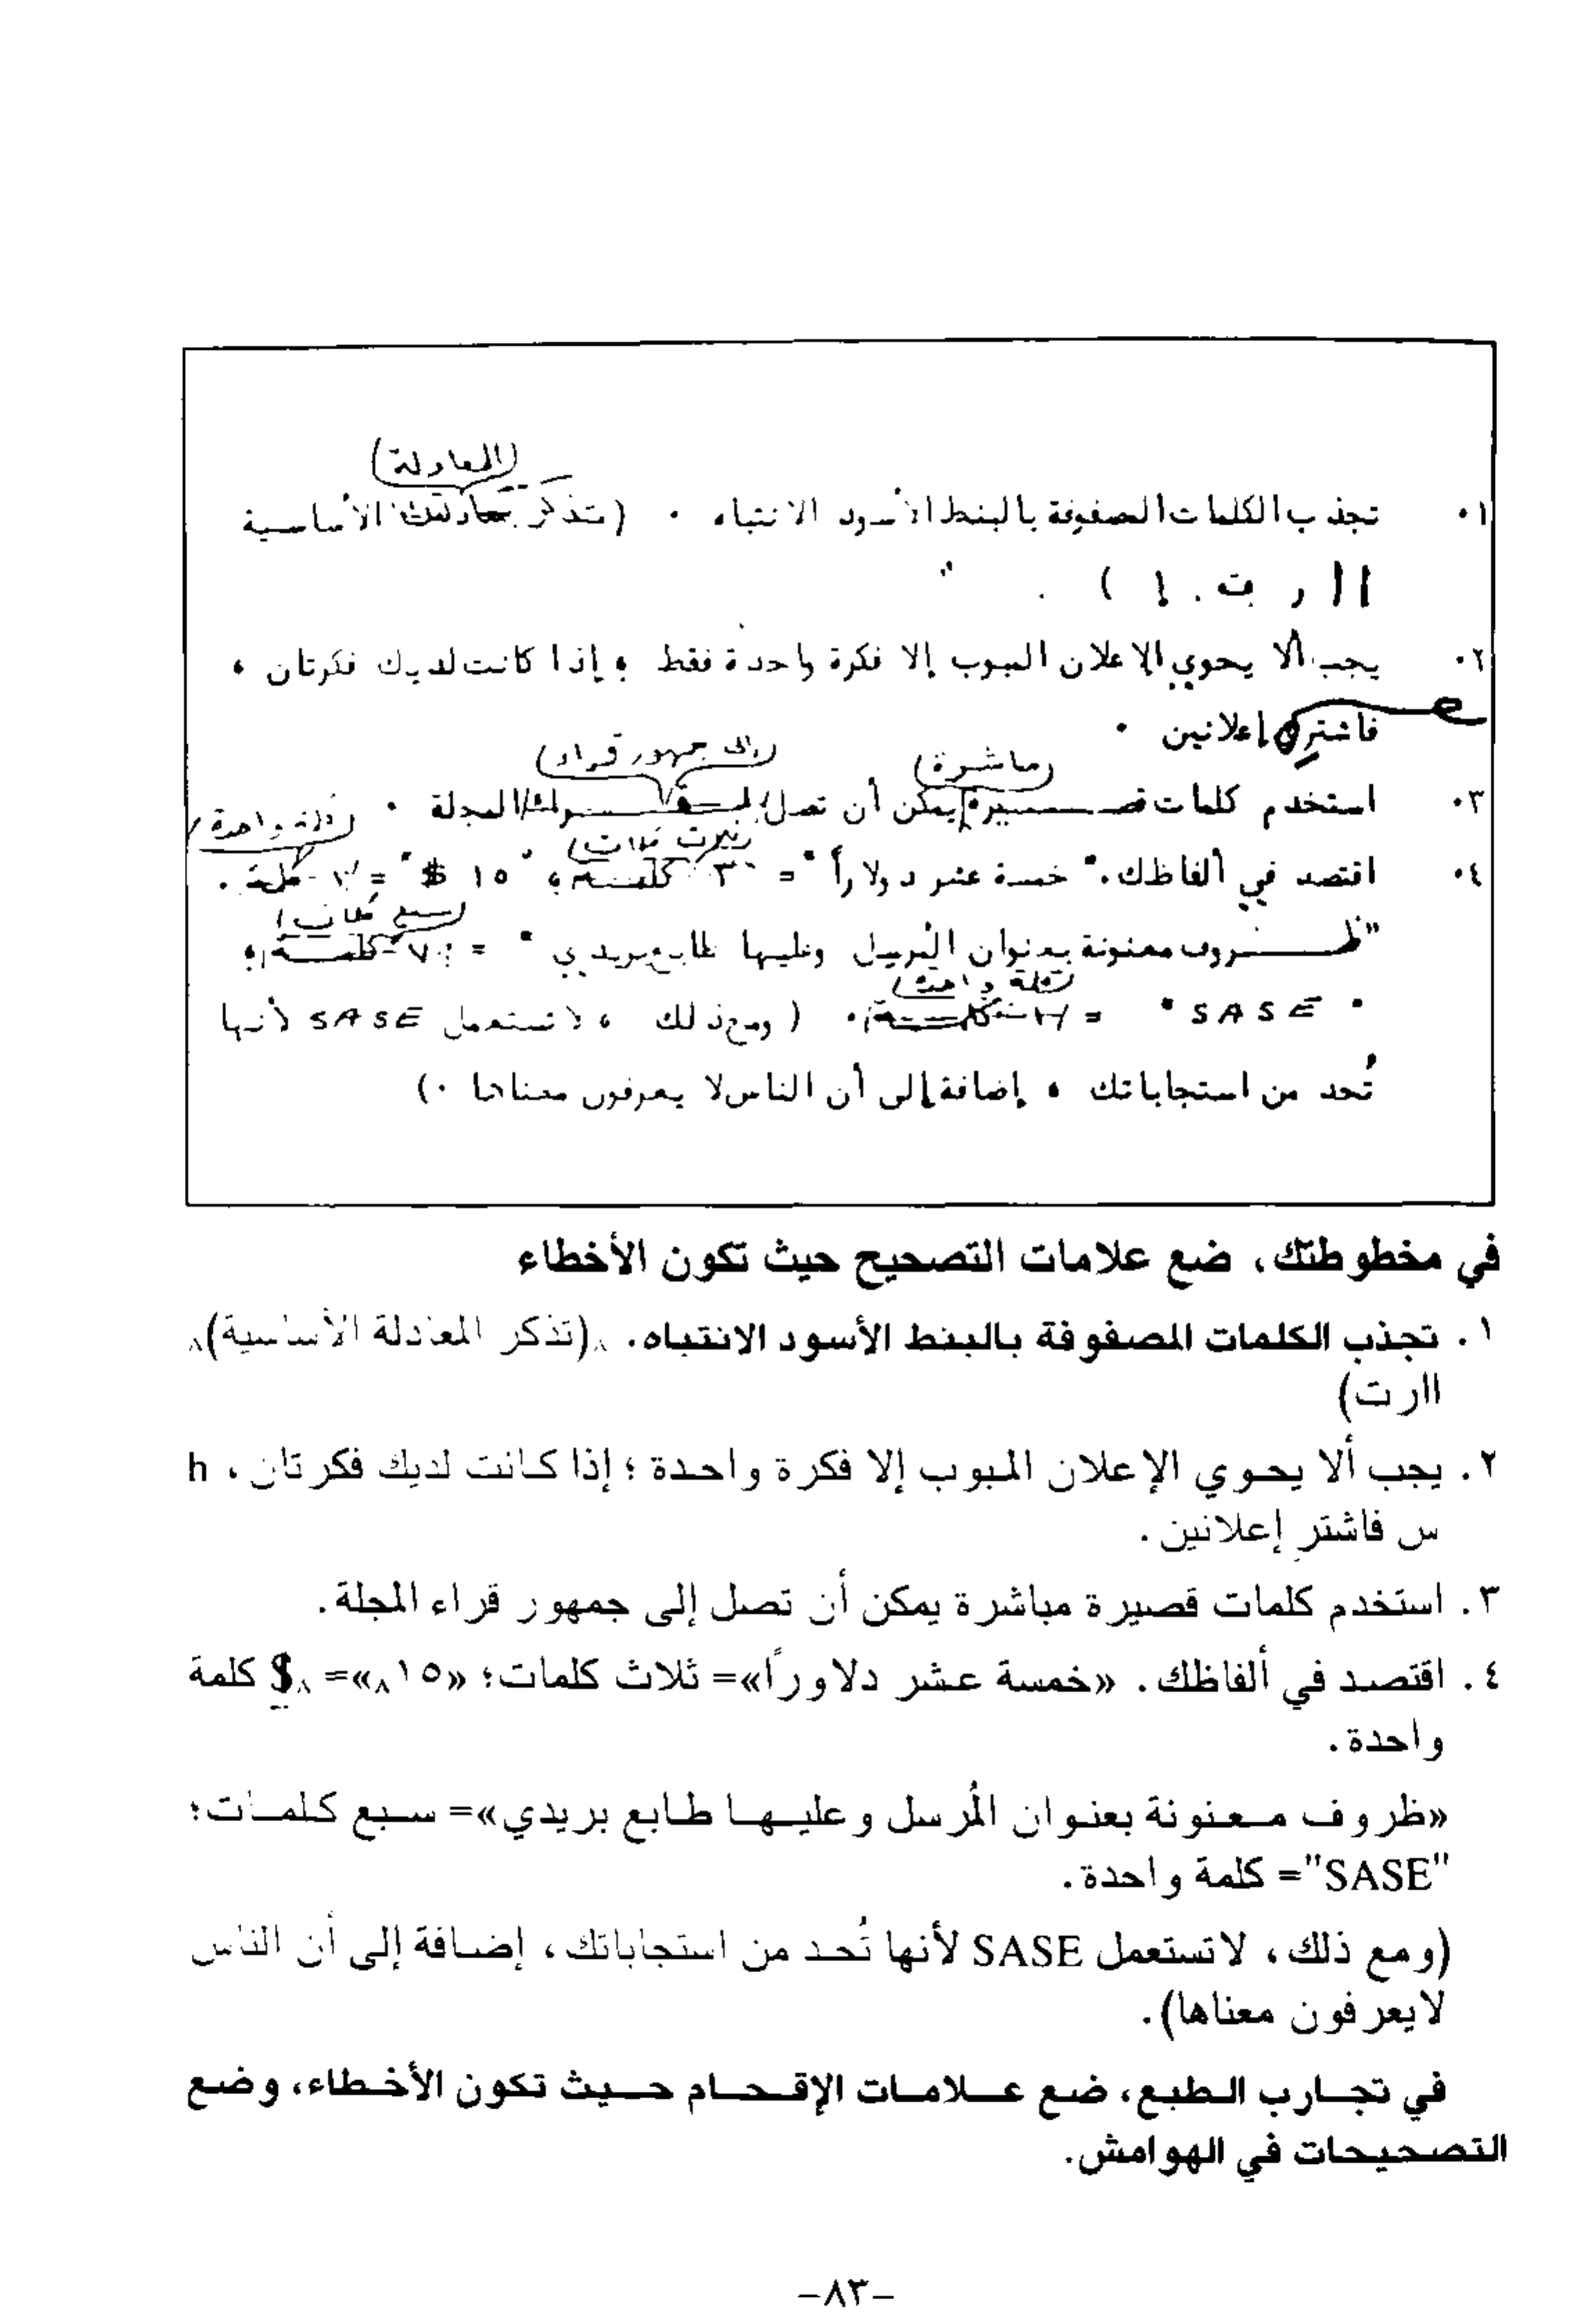 (المعادلة)
١. تجذب الكلمات المصفوفة بالبنط الأسود الانتباه. (تذكر الأساسية
اا ر ت . إ )
٢. يجب ألا يحوي الإعلان المبوب إلا فكرة واحدة فقط ؛ إذا كانت لديك فكرتان ،
فاشتر إعلانين .
(مباشرة) (إلى جمهور قراء)
٣. استخدم كلمات قصيرة يمكن أن تصل المجلة .
(ثلاث كلمات) (كلمة واحدة)
٤. اقتصد في ألفاظك. "خمسة عشر دولاراً" = ٣ كلمة؛ "١٥ $" = كلمة.
(سبع كلمات)
"ظروف معنونة بعنوان المُرسل وعليها طابع بريدي" = ٧ كلمة؛
(كلمة واحدة)
"SASE" = ١ كلمة. (ومع ذلك ، لا تستعمل SASE لأنها
تُحد من استجاباتك ، إضافة إلى أن الناس لا يعرفون معناها .)
في مخطوطتك، ضع علامات التصحيح حيث تكون الأخطاء
١. تجذب الكلمات المصفوفة بالبنط الأسود الانتباه. ٨(تذكر المعادلة الأساسية)٨
اارت)
٢. يجب ألا يحوي الإعلان المبوب إلا فكرة واحدة ؛ إذا كانت لديك فكرتان، h
س فاشترِ إعلانين.
٣. استخدم كلمات قصيرة مباشرة يمكن أن تصل إلى جمهور قراء المجلة.
٤. اقتصد في ألفاظك. «خمسة عشر دلاورًا»= ثلاث كلمات؛ «١٥٨»= ٨$ كلمة
واحدة.
«ظروف معنونة بعنوان المُرسل وعليها طابع بريدي»= سبع كلمات؛
"SASE"= كلمة واحدة.
(ومع ذلك، لاتستعمل SASE لأنها تُحد من استجاباتك، إضافة إلى أن الناس
لايعرفون معناها).
في تجارب الطبع، ضع علامات الإقحام حيث تكون الأخطاء، وضع
التصحيحات في الهوامش.
-٨٣-